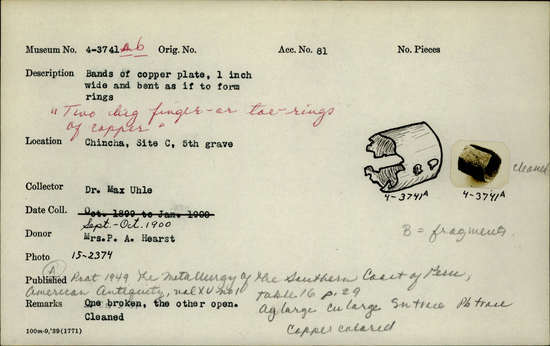 Museum No. 4-3741 a b Orig. No. Acc. No. 81 No. Pieces
Description Bands of copper plate, 1 inch
wide and bent as if to form
rings
"Two big finger-or toe-rings
of copper"
Location Chincha, Site C, 5th grave
4-3741A
4-3741A
cleaned
Collector Dr. Max Uhle
Date Coll. Oct. 1899 to Jan. 1900
Sept.-Oct. 1900
Donor Mrs. P. A. Hearst
B = fragments.
Photo 15-2374
Published Root 1949 The Metallurgy of the Southern Coast of Peru,
American Antiquity, vol XV no 1 table 16 p. 29
Remarks One broken, the other open.
Cleaned
Ag large Cu large Sn trace Pb trace
Copper colored
100m-9,'39(1771)